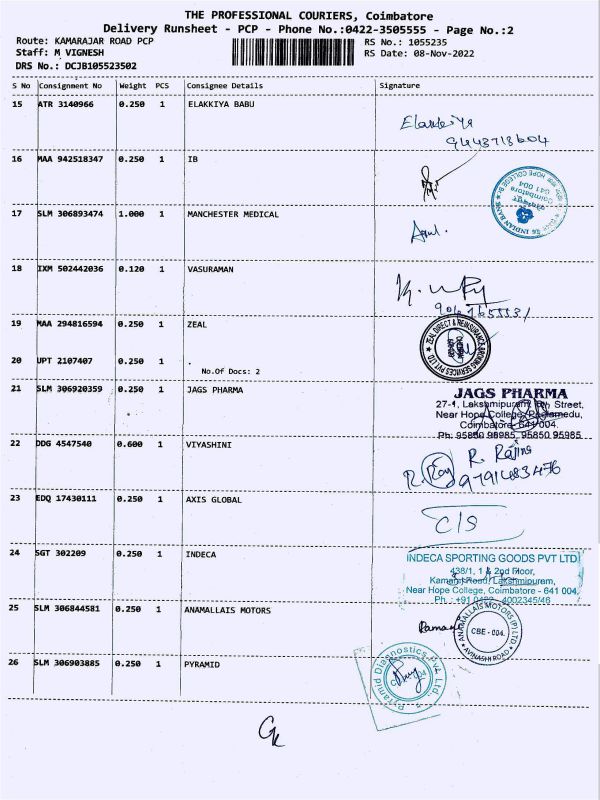 THE PROFESSIONAL COURIERS, Coimbatore
Delivery Runsheet - PCP - Phone No.:0422-3505555 - Page No.:2
Route: KAMARAJAR ROAD PCP RS No.: 1055235
Staff: M VIGNESH RS Date: 08-Nov-2022
DRS No.: DCJB105523502
S No Consignment No Weight PCS Consignee Details Signature
15 ATR 3140966 0.250 1 ELAKKIYA BABU
Elakkiya
9443718604
16 MAA 942518347 0.250 1 IB
INDIAN BANK
HOPE COLLEGE
Coimbatore
641 004
17 SLM 306893474 1.000 1 MANCHESTER MEDICAL
18 IXM 502442036 0.120 1 VASURAMAN
19 MAA 294816594 0.250 1 ZEAL
ZEAL DIRECT & REINSURANCE BROKING SERVICES PVT LTD
20 UPT 2107407 0.250 1
No.Of Docs: 2
21 SLM 306920359 0.250 1 JAGS PHARMA
JAGS PHARMA
27-1, Lakshmipuram, Street,
Near Hope College, Peelamedu,
Coimbatore - 641 004.
Ph: 95850 98985, 95850 95985
22 DDG 4547540 0.600 1 VIYASHINI
R. Rajina
9791483476
23 EDQ 17430111 0.250 1 AXIS GLOBAL
C/S
24 SGT 302209 0.250 1 INDECA
INDECA SPORTING GOODS PVT LTD
438/1, 1 & 2nd Floor,
Kamaraj Road, Lakshmipuram,
Near Hope College, Coimbatore - 641 004.
Ph : +91 0422 - 4002345/46
25 SLM 306844581 0.250 1 ANAMALLAIS MOTORS
ANAMALLAIS MOTORS (P) LTD
CBE - 004.
AVINASHI ROAD
26 SLM 306903885 0.250 1 PYRAMID
Pyramid Diagnostics Pvt. Ltd.,